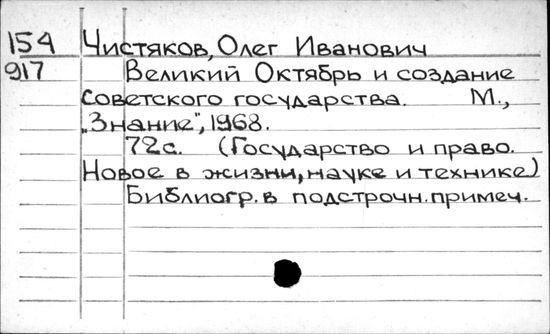 154 Чистяков, Олег Иванович
917 Великий Октябрь и создание
советского государства. М.,
„Знание", 1968.
72с. (Государство и право.
Новое в жизни, науке и технике)
Библиогр. в подстрочн. примеч.